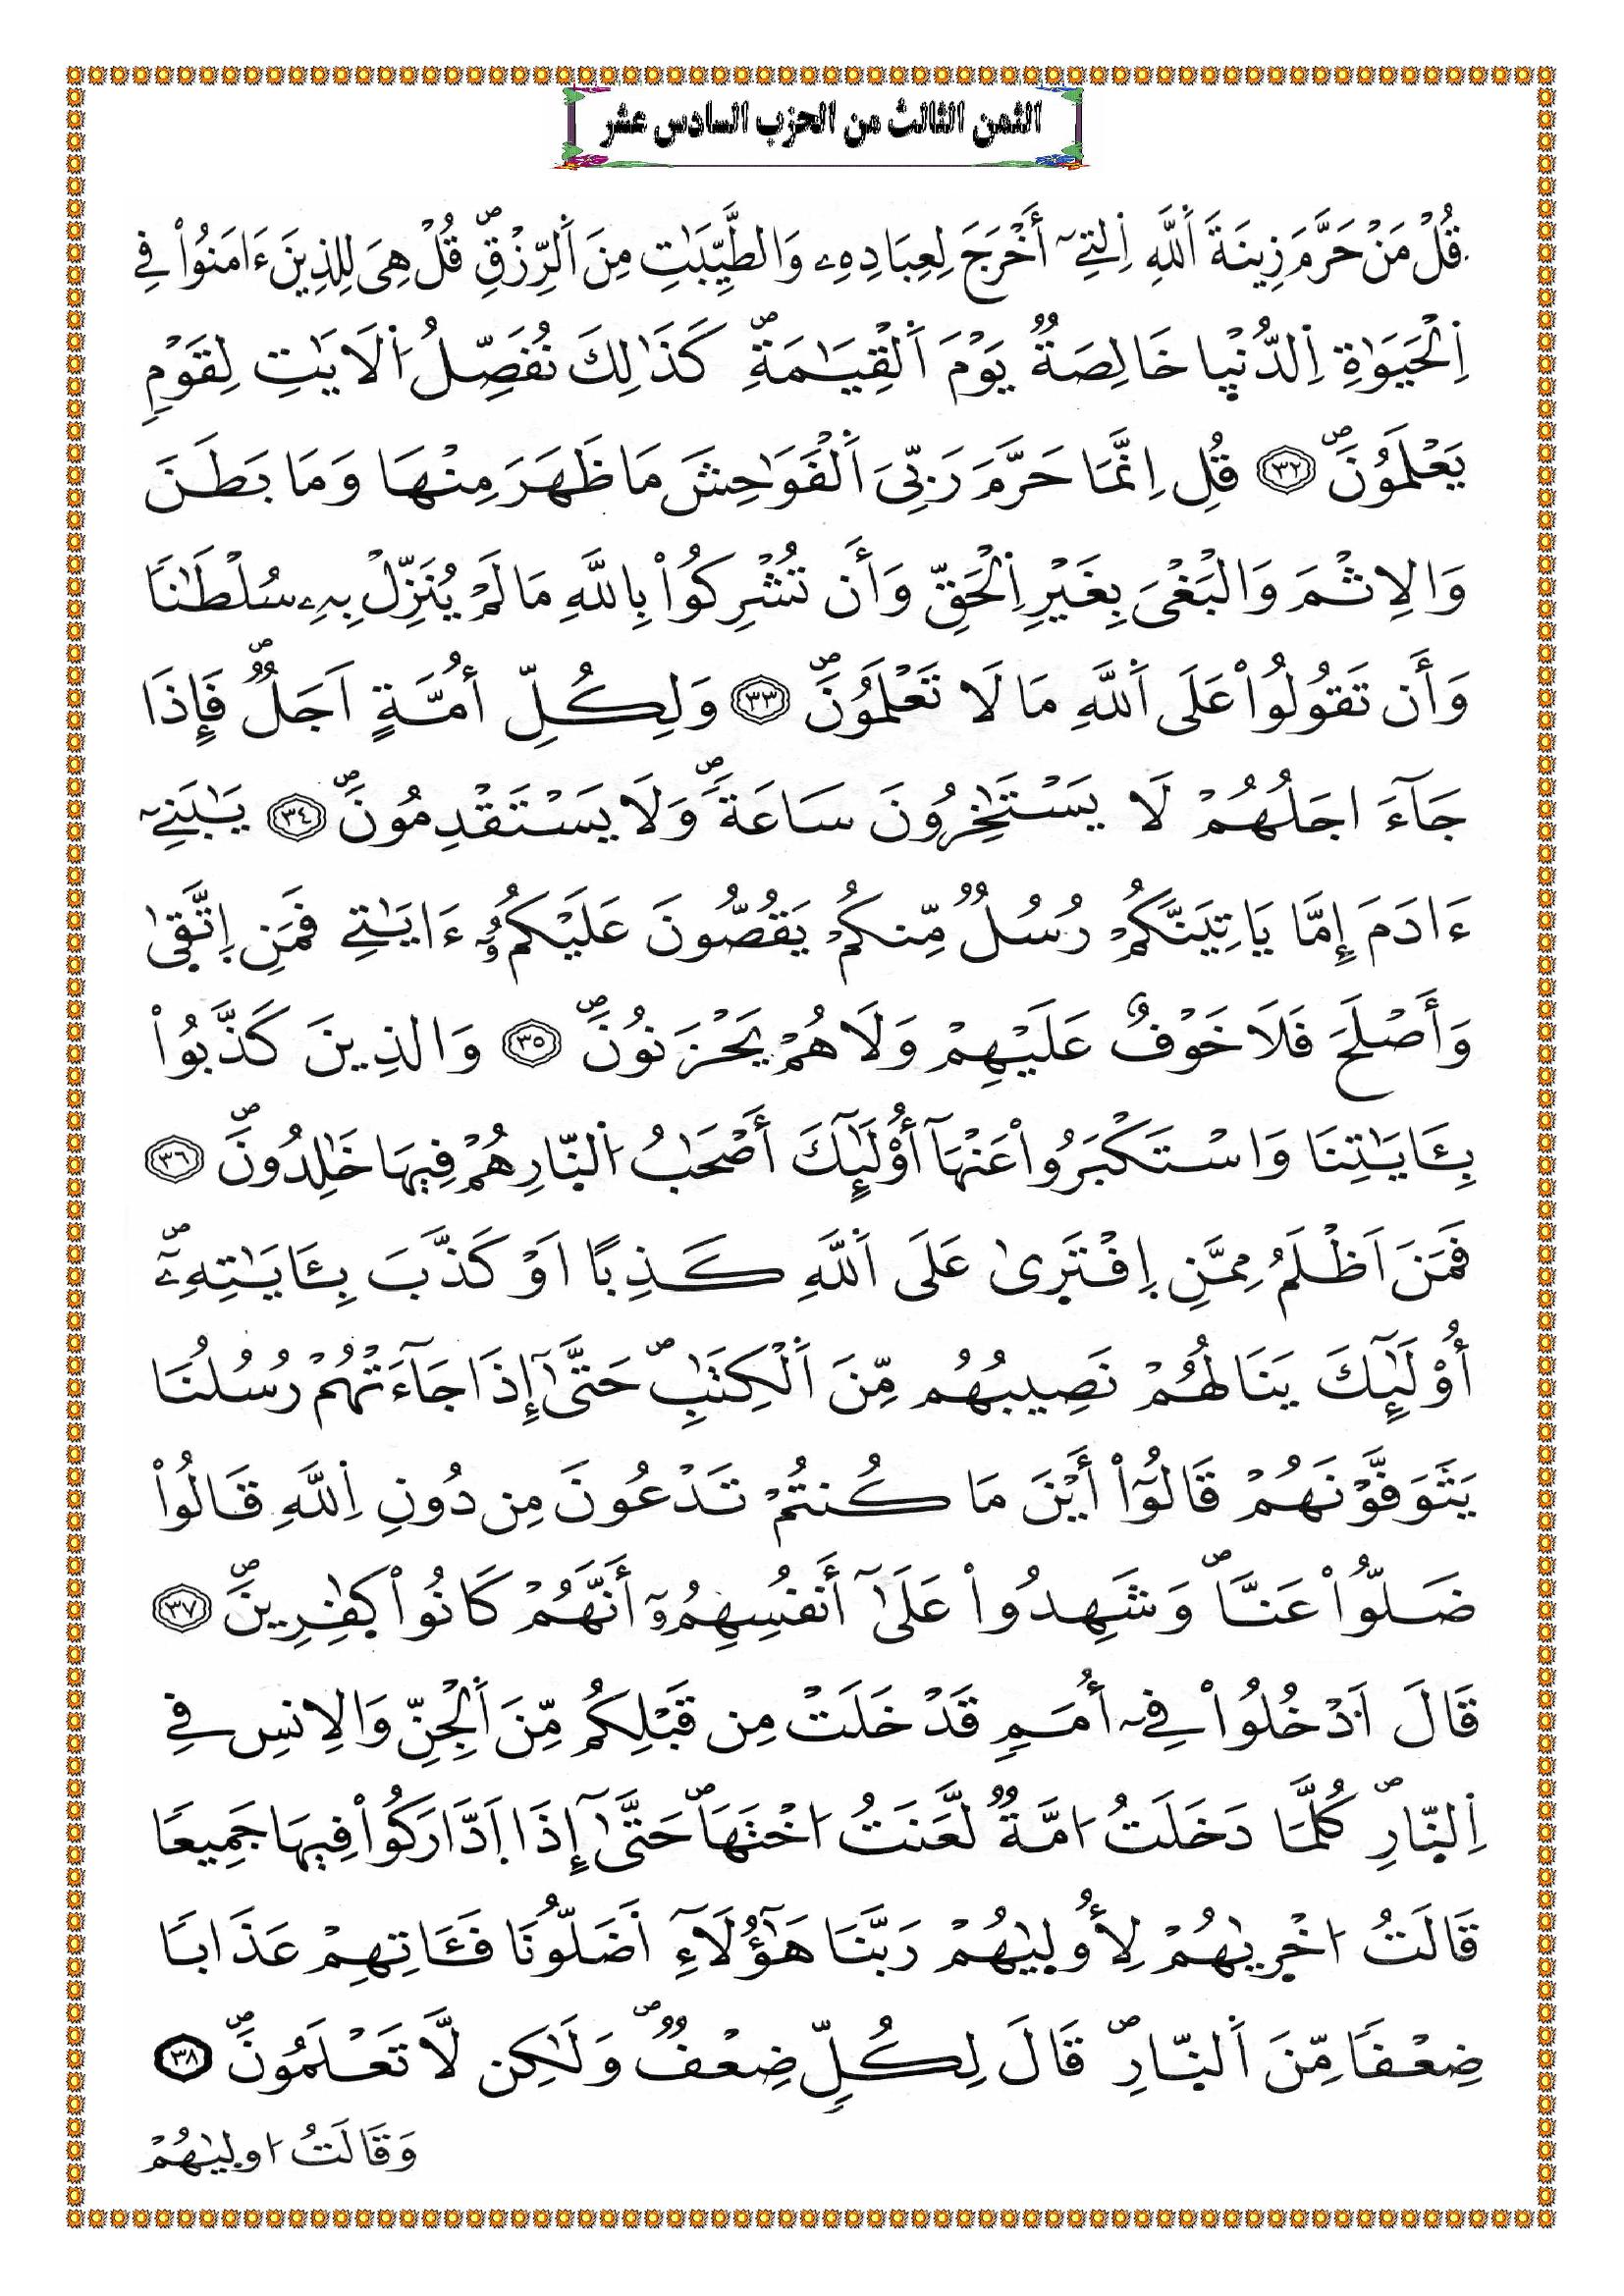 الثمن الثالث من الحزب السادس عشر
قُلْ مَنْ حَرَّمَ زِينَةَ اَ۬للَّهِ اِ۬لتِےٓ أَخْرَجَ لِعِبَادِهِۦ وَالطَّيِّبَٰتِ مِنَ اَ۬لرِّزْقِۖ قُلْ هِىَ لِلذِينَ ءَامَنُواْ فِے
اِ۬لْحَيَوٰةِ اِ۬لدُّنْي۪ا خَالِصَةٌ يَوْمَ اَ۬لْقِيَٰمَةِۖ كَذَٰلِكَ نُفَصِّلُ اُ۬لَايَٰتِ لِقَوْمٖ
يَعْلَمُونَۖ ٣٢ قُلِ اِنَّمَا حَرَّمَ رَبِّىَ اَ۬لْفَوَٰحِشَ مَا ظَهَرَ مِنْهَا وَمَا بَطَنَ
وَالِاثْمَ وَالْبَغْىَ بِغَيْرِ اِ۬لْحَقِّ وَأَن تُشْرِكُواْ بِاللَّهِ مَا لَمْ يُنَزِّلْ بِهِۦ سُلْطَٰناٗ
وَأَن تَقُولُواْ عَلَى اَ۬للَّهِ مَا لَا تَعْلَمُونَۖ ٣٣ وَلِكُلِّ أُمَّةٍ اَجَلٞۖ فَإِذَا
جَآءَ اجَلُهُمْ لَا يَسْتَٰخِرُونَ سَاعَةٗۖ وَلَا يَسْتَقْدِمُونَۖ ٣٤ يَٰبَنِےٓ
ءَادَمَ إِمَّا يَاتِيَنَّكُمْ رُسُلٞ مِّنكُمْ يَقُصُّونَ عَلَيْكُمُۥٓ ءَايَٰتِے فَمَنِ اِ۪تَّق۪ىٰ
وَأَصْلَحَ فَلَا خَوْفٌ عَلَيْهِمْ وَلَا هُمْ يَحْزَنُونَۖ ٣٥ وَالذِينَ كَذَّبُواْ
بِـَٔايَٰتِنَا وَاسْتَكْبَرُواْ عَنْهَآ أُوْلَٰٓئِكَ أَصْحَٰبُ اُ۬لنّ۪ارِ هُمْ فِيهَا خَٰلِدُونَۖ ٣٦
فَمَنَ اَظْلَمُ مِمَّنِ اِ۪فْتَر۪ىٰ عَلَى اَ۬للَّهِ كَذِباً اَوْ كَذَّبَ بِـَٔايَٰتِهِۦٓۖ
أُوْلَٰٓئِكَ يَنَالُهُمْ نَصِيبُهُم مِّنَ اَ۬لْكِتَٰبِۖ حَتَّىٰٓ إِذَا جَآءَتْهُمْ رُسُلُنَا
يَتَوَفَّوْنَهُمْ قَالُوٓاْ أَيْنَ مَا كُنتُمْ تَدْعُونَ مِن دُونِ اِ۬للَّهِ قَالُواْ
ضَلُّواْ عَنَّاۖ وَشَهِدُواْ عَلَىٰٓ أَنفُسِهِمُۥٓ أَنَّهُمْ كَانُواْ كٰ۪فِرِينَۖ ٣٧
قَالَ اَ۟دْخُلُواْ فِےٓ أُمَمٖ قَدْ خَلَتْ مِن قَبْلِكُم مِّنَ اَ۬لْجِنِّ وَالِانسِ فِے
اِ۬لنّ۪ارِۖ كُلَّمَا دَخَلَتُ ا۟مَّةٞ لَّعَنَتُ ا۟خْتَهَاۖ حَتَّىٰٓ إِذَا اَ۪دَّارَكُواْ فِيهَا جَمِيعاٗ
قَالَتُ ا۟خْر۪يٰهُمْ لِأُول۪يٰهُمْ رَبَّنَا هَٰٓؤُلَآءِ أَضَلُّونَا فَـَٔاتِهِمْ عَذَاباٗ
ضِعْفاٗ مِّنَ اَ۬لنّ۪ارِۖ قَالَ لِكُلّٖ ضِعْفٞۖ وَلَٰكِن لَّا تَعْلَمُونَۖ ٣٨
وَقَالَتُ ا۟ول۪يٰهُمْ